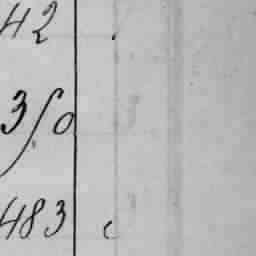 42
350
483